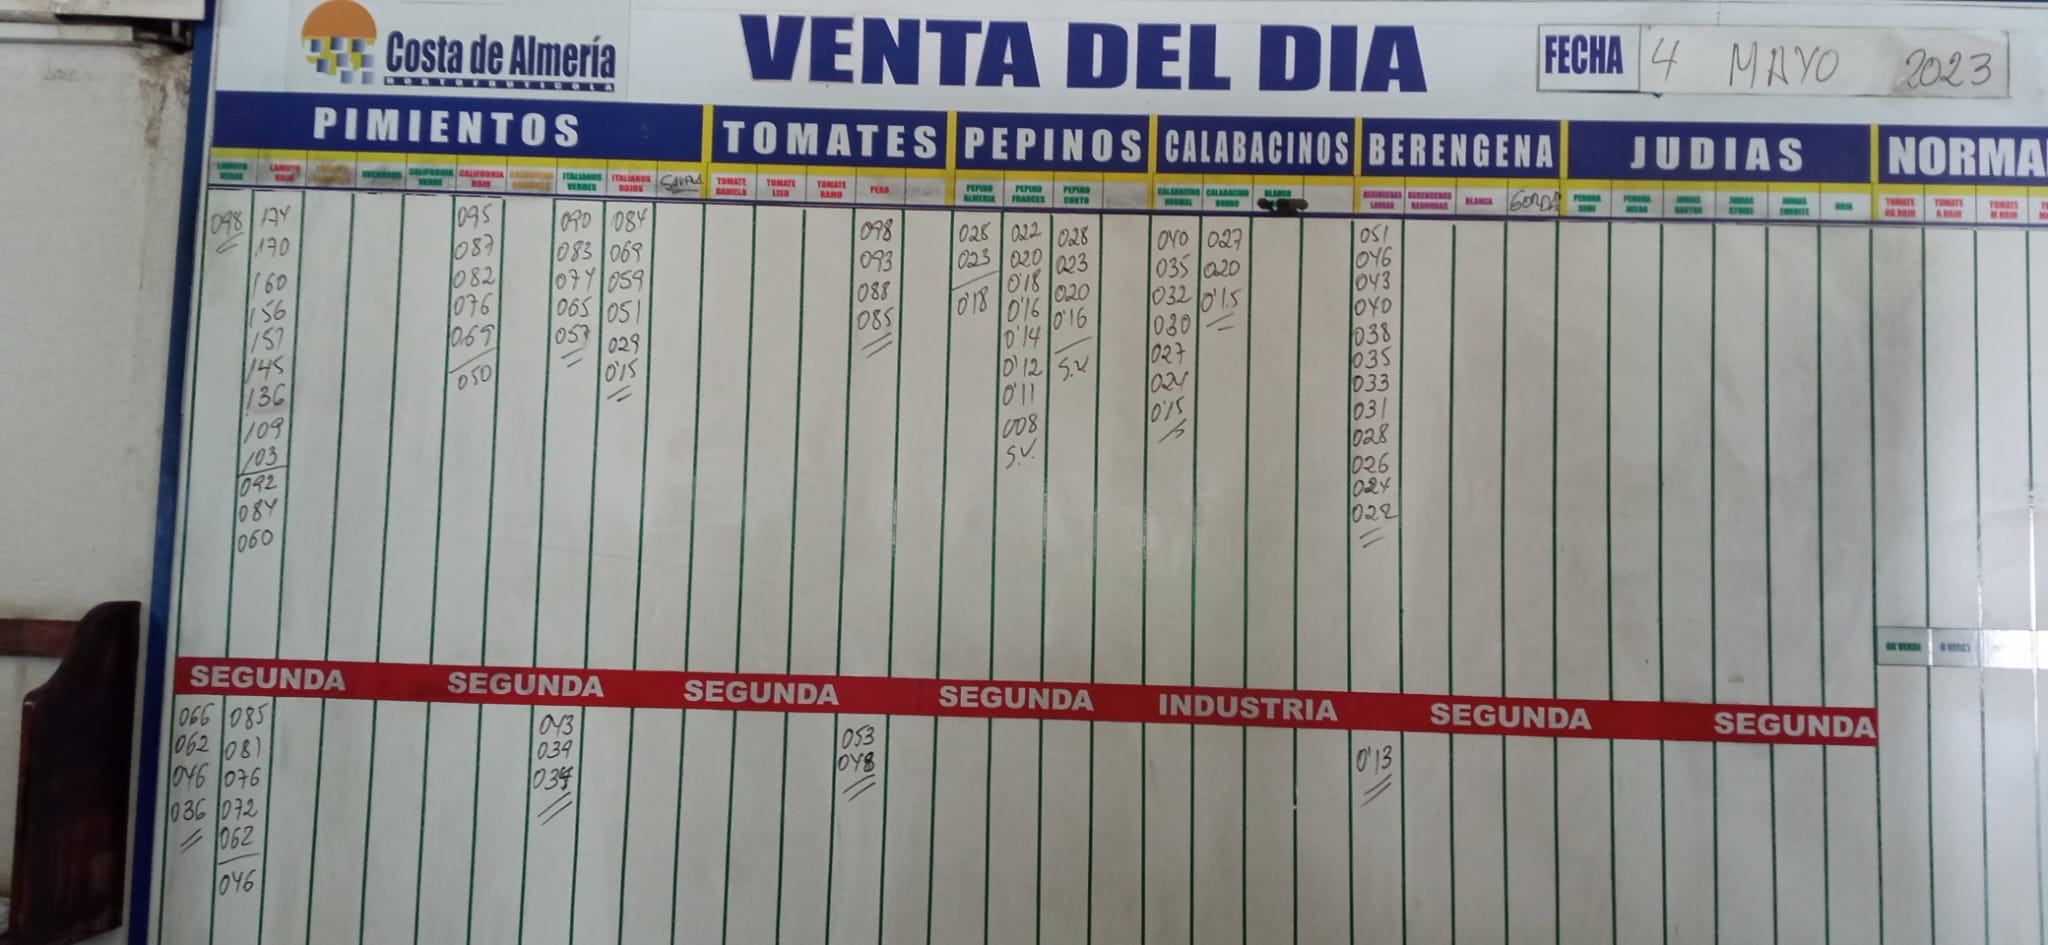 Costa de Almería
HORTOFRUTICOLA
VENTA DEL DIA
FECHA 4 MAYO 2023
PIMIENTOS TOMATES PEPINOS CALABACINOS BERENGENA JUDIAS NORMA
LAMUYO VERDE LAMUYO ROJO CALIFORNIA VERDE CALIFORNIA ROJO CALIFORNIA AMARILLO ITALIANOS VERDES ITALIANOS ROJOS TOMATE DANIELA TOMATE LISO TOMATE RAMO PERA PEPINO ALMERIA PEPINO FRANCES PEPINO CORTO CALABACINO NORMAL CALABACINO GORDO BLANCO BERENGENAS LARGAS BERENGENAS REDONDAS BLANCA GORDA PERONA SEMI PERONA JUDIAS JUDIAS JUDIAS TOMATE GG ROJO TOMATE G ROJO TOMATE M ROJO
098 174 095 090 084 098 028 022 028 040 027 051
170 087 083 069 093 023 020 023 035 020 046
160 082 074 059 088 0'18 0'18 020 032 0'15 043
156 076 065 051 085 0'16 0'16 030 040
151 069 057 029 0'14 S.V. 027 038
145 050 0'15 0'12 024 035
136 0'11 0'15 033
109 008 031
103 S.V. 028
092 026
084 024
060 022
GG VERDE G VERDE
SEGUNDA SEGUNDA SEGUNDA SEGUNDA INDUSTRIA SEGUNDA SEGUNDA
066 085 043 053 0'13
062 081 039 048
046 076 034
036 072
062
046